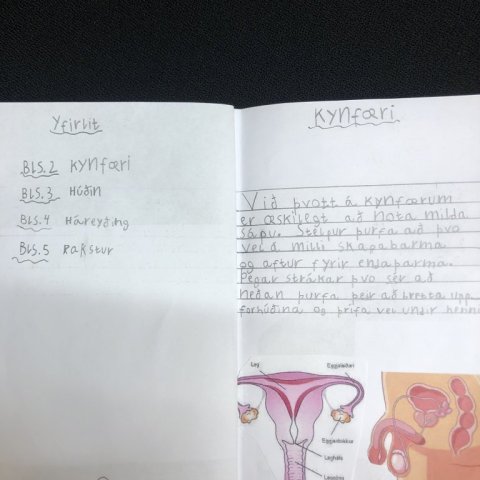 Yfirlit
BLS.2 Kynfæri
BLS.3 Húðin
BLS.4 Háreyðing
BLS.5 Rakstur
Kynfæri
Við þvott á kynfærum
er æskilegt að nota milda
sápu. Stelpur þurfa að þvo
vel á milli skapabarma
og aftur fyrir endaþarma.
Þegar strákar þvo sér að
neðan þurfa þeir að bretta upp
forhúðina og þrífa vel undir henni
Leg
Eggjaleiðari
Eggjastokkur
Legháls
Leggöng